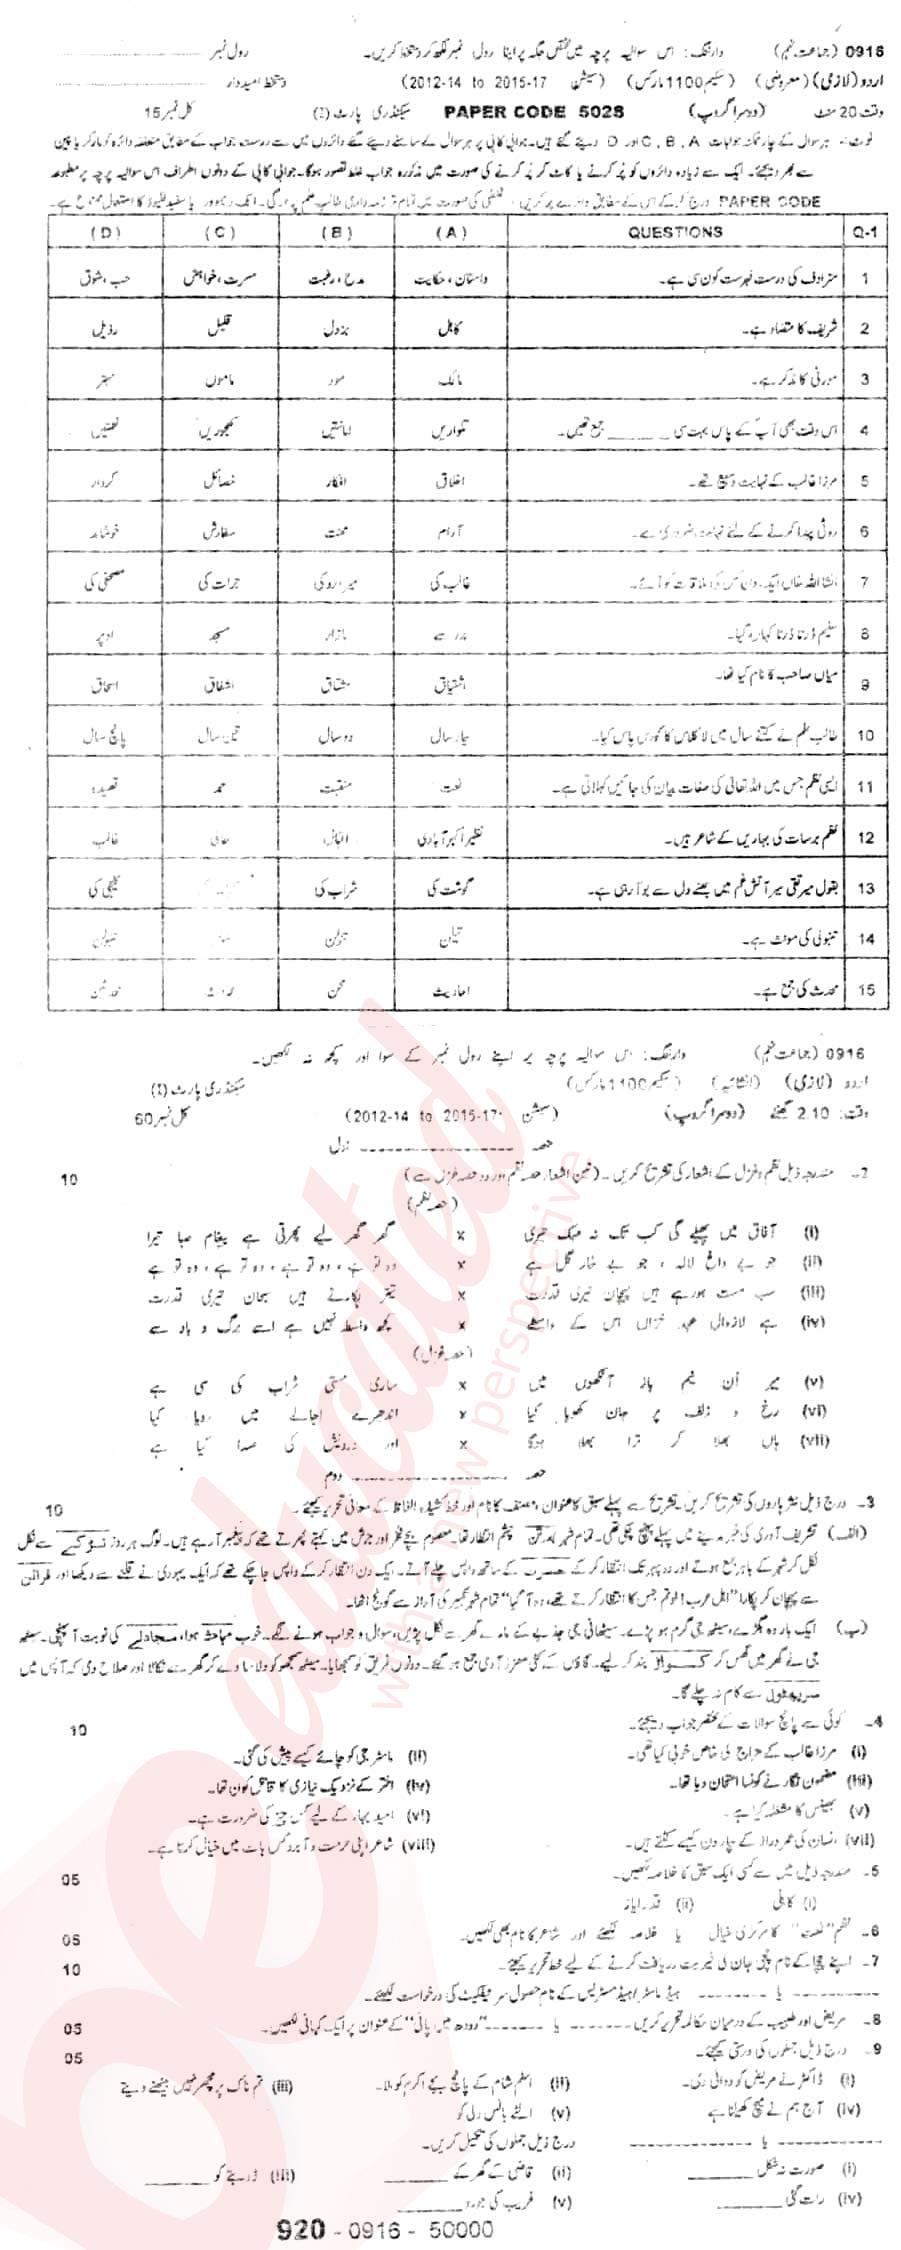 0916 (جماعت نہم) وارننگ: اس سوالیہ پرچہ میں مختص جگہ پر اپنا رول نمبر لکھ کر دستخط کریں۔ رول نمبر
اردو (لازمی) (معروضی) (سکیم 1100 مارکس) (سیشن 2012-14 to 2015-17) دستخط امیدوار
وقت 20 منٹ (دوسرا گروپ) PAPER CODE 5028 سیکنڈری پارٹ (I) کل نمبر 15
نوٹ:- ہر سوال کے چار ممکنہ جوابات A, B, C اور D دیئے گئے ہیں۔ جوابی کاپی پر ہر سوال کے سامنے دیئے گئے دائروں میں سے درست جواب کے مطابق متعلقہ دائرہ کو مارکر یا پین
سے بھر دیجئے۔ ایک سے زیادہ دائروں کو پُر کرنے یا کاٹ کر پُر کرنے کی صورت میں مذکورہ جواب غلط تصور ہوگا۔ جوابی کاپی کے دونوں اطراف اس سوالیہ پرچہ پر مطبوعہ
PAPER CODE درج کرکے اس کے مطابق دائرے پُر کریں، غلطی کی صورت میں تمام تر ذمہ داری طالب علم پر ہوگی۔ انک ریموور یا سفید فلیوڈ کا استعمال ممنوع ہے۔
Q-1 QUESTIONS (A) (B) (C) (D)
1 مترادف کی درست فہرست کون سی ہے۔ داستان، حکایت مدح، رغبت مسرت، خواہش حب، شوق
2 شریف کا متضاد ہے۔ کاہل بزدل قلیل رذیل
3 مورنی کا مذکر ہے۔ مالک مور ماموں مہتر
4 اس وقت بھی آپ کے پاس بہت سی ______ جمع تھیں۔ تلواریں امانتیں کھجوریں نعمتیں
5 مرزا غالب کے نہایت وسیع تھے۔ اخلاق افکار خصائل کردار
6 روٹی پیدا کرنے کے لئے نہایت ضروری ہے۔ آرام محنت سفارش خوشامد
7 انشا اللہ خاں ایک دن کس کی ملاقات کو آئے۔ غالب کی میر درد کی جرات کی مصحفی کی
8 سلیم ڈرتا ڈرتا کہاں گیا۔ مدرسے بازار مسجد اوپر
9 میاں صاحب کا نام کیا تھا۔ اشتیاق مشتاق اشفاق اسحاق
10 طالب علم نے کتنے سال میں لا کلاس کا کورس پاس کیا۔ چار سال دو سال تین سال پانچ سال
11 ایسی نظم جس میں اللہ تعالیٰ کی صفات بیان کی جائیں کہلاتی ہے۔ نعت منقبت حمد قصیدہ
12 نظم برسات کی بہاریں کے شاعر ہیں۔ نظیر اکبر آبادی اقبال حالی غالب
13 بقول میر تقی میر آتش غم میں بھنے دل سے بو آرہی ہے۔ گوشت کی شراب کی کلیجی کی
14 تنبولی کی مونث ہے۔ تیلن تنبولن
15 محدث کی جمع ہے۔ احادیث محدثین
0916 (جماعت نہم) وارننگ: اس سوالیہ پرچہ پر اپنے رول نمبر کے سوا اور کچھ نہ لکھیں۔
اردو (لازمی) (انشائیہ) (سکیم 1100 مارکس) سیکنڈری پارٹ (I)
وقت: 2.10 گھنٹے (دوسرا گروپ) (سیشن 2012-14 to 2015-17) کل نمبر 60
حصہ -------------------- اول
2- مندرجہ ذیل نظم و غزل کے اشعار کی تشریح کریں۔ (تین اشعار حصہ نظم اور دو حصہ غزل سے) 10
(حصہ نظم)
(i) آفاق میں پھیلے گی کب تک نہ مہک تیری x گھر گھر لیے پھرتی ہے پیغام صبا تیرا
(ii) جو بے داغ لالہ ، جو بے خار گل ہے x وہ تو ہے ، وہ تو ہے ، وہ تو ہے ، وہ تو ہے
(iii) سب مست ہورہے ہیں پہچان تیری قدرت x تیتر پکارتے ہیں سبحان تیری قدرت
(iv) ہے لازوال عہد خزاں اس کے واسطے x کچھ واسطہ نہیں ہے اسے برگ و بار سے
(حصہ غزل)
(v) میر اُن نیم باز آنکھوں میں x ساری مستی شراب کی سی ہے
(vi) رخ و زلف پر جان کھویا کیا x اندھیرے اجالے میں رویا کیا
(vii) ہاں بھلا کر ترا بھلا ہوگا x اور درویش کی صدا کیا ہے
حصہ -------------------- دوم
3- درج ذیل نثر پاروں کی تشریح کریں۔ تشریح سے پہلے سبق کا عنوان، مصنف کا نام اور خط کشیدہ الفاظ کے معانی تحریر کیجئے۔ 10
(الف) تشریف آوری کی خبر مدینے میں پہلے پہنچ چکی تھی۔ تمام شہر ہمہ تن چشم انتظار تھا۔ معصوم بچے فخر اور جوش میں کہتے پھرتے تھے کہ پیغمبر آرہے ہیں۔ لوگ ہر روز تڑکے سے نکل
نکل کر شہر کے باہر جمع ہوتے اور دوپہر تک انتظار کر کے حسرت کے ساتھ واپس چلے آتے۔ ایک دن انتظار کر کے واپس جاچکے تھے کہ ایک یہودی نے قلعے سے دیکھا اور قرائن
سے پہچان کر پکارا "اہل عرب! لو تم جس کا انتظار کرتے تھے، وہ آ گیا" تمام شہر تکبیر کی آواز سے گونج اٹھا۔
(ب) ایک بار وہ بگڑے، سیٹھ جی گرم ہو پڑے۔ سیٹھانی جی جذبے کے مارے گھر سے نکل پڑیں، سوال و جواب ہونے لگے۔ خوب مباحثہ ہوا، مجادلے کی نوبت آ پہنچی۔ سیٹھ
جی نے گھر میں گھس کر کواڑ بند کر لیے۔ گاؤں کے کئی معزز آدمی جمع ہو گئے۔ دونوں فریق کو سمجھایا۔ سیٹھ سمجھو کو دلاسا دے کر گھر سے نکالا اور صلاح دی کہ آپس میں
سر پھٹول سے کام نہ چلے گا۔
4- کوئی سے پانچ سوالات کے مختصر جواب دیجئے۔ 10
(i) مرزا غالب کے مزاج کی خاص خوبی کیا تھی۔ (ii) ماسٹر جی کو چائے کیسے پیش کی گئی۔
(iii) مضمون نگار نے کونسا امتحان دیا تھا۔ (iv) اختر کے نزدیک نیازی کا قاتل کون تھا۔
(v) بھینس کا مشغلہ کیا ہے۔ (vi) امید بہار کے لیے کس چیز کی ضرورت ہے۔
(vii) انسان کی عمر دراز کے چار دن کیسے کٹتے ہیں۔ (viii) شاعر اپنی حرمت و آبرو کس بات میں خیال کرتا ہے۔
5- مندرجہ ذیل میں سے کسی ایک سبق کا خلاصہ لکھیں۔ 05
(i) کاہلی (ii) قدر ایاز
6- نظم "نعت" کا مرکزی خیال یا خلاصہ لکھئے اور شاعر کا نام بھی لکھیں۔ 05
7- اپنے چچا کے نام چچی جان کی خیریت دریافت کرنے کے لیے خط تحریر کیجئے۔ 10
---------- یا ---------- ہیڈ ماسٹر/ہیڈ مسٹریس کے نام حصول سرٹیفکیٹ کی درخواست لکھئے۔
8- مریض اور طبیب کے درمیان مکالمہ تحریر کریں ------ یا ------ "دودھ میں پانی" کے عنوان پر ایک کہانی لکھیں۔ 05
9- درج ذیل جملوں کی درستی کیجئے۔ 05
(i) ڈاکٹر نے مریض کو دوائی دی۔ (ii) اسلم شام کے پانچ بجے اکرم کو ملا۔ (iii) تم ناک پر مچھر نہیں بیٹھنے دیتے
(iv) آج ہم نے میچ کھیلنا ہے (v) الٹے بانس دلی کو
---------- یا ---------- درج ذیل جملوں کی تکمیل کریں۔
(i) صورت نہ شکل ______ (ii) قاضی کے گھر کے ______ (iii) ڈوبتے کو ______
(iv) رات گئی ______ (v) غریب کی جورو ______
920 - 0916 - 50000
beeducated
with a new perspective